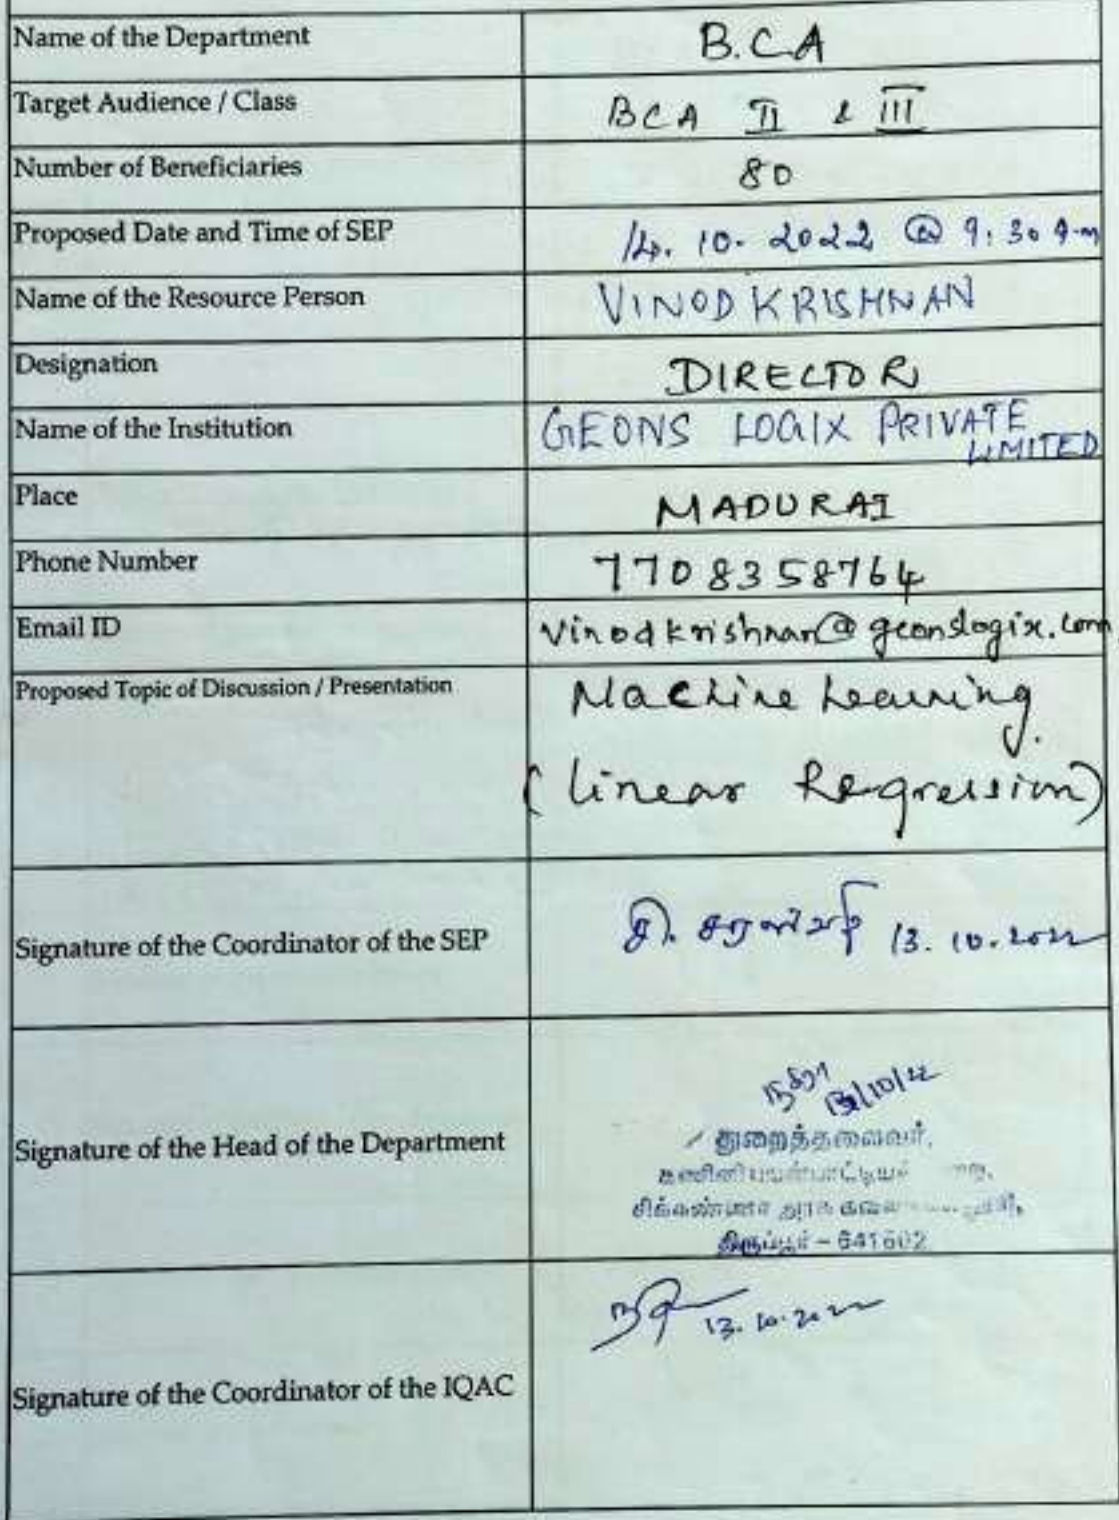 Name of the Department B.C.A
Target Audience / Class BCA II & III
Number of Beneficiaries 80
Proposed Date and Time of SEP 14. 10. 2022 @ 9:30 a.m
Name of the Resource Person VINOD KRISHNAN
Designation DIRECTOR
Name of the Institution GEONS LOGIX PRIVATE
LIMITED
Place MADURAI
Phone Number 7708358764
Email ID vinodkrishnan@geonslogix.com
Proposed Topic of Discussion / Presentation Machine Learning
(Linear Regression)
Signature of the Coordinator of the SEP 13.10.2022
13/10/22
Signature of the Head of the Department துறைத்தலைவர்,
சிக்கண்ணா அரசு
திருப்பூர் – 641602
13.10.2022
Signature of the Coordinator of the IQAC